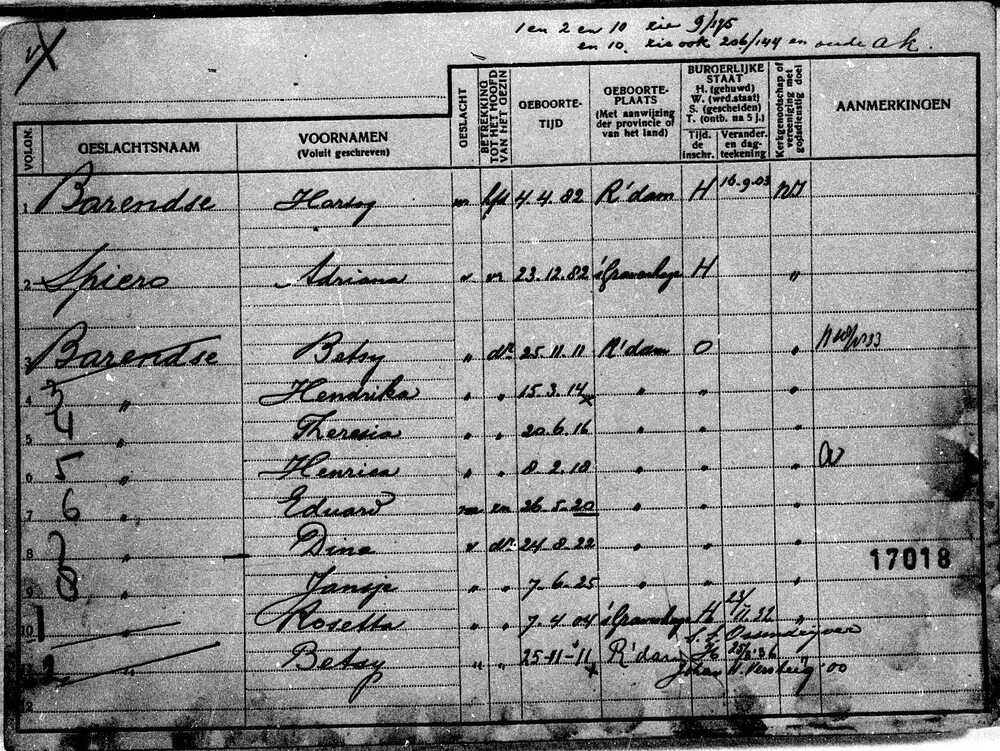 1 en 2 en 10 zie 9/175
en 10. zie ook 206/144 en oude a k.
VOLGN.
GESLACHTSNAAM
VOORNAMEN
(Voluit geschreven)
GESLACHT
BETREKKING TOT HET HOOFD VAN HET GEZIN
GEBOORTE-
TIJD
GEBOORTE-
PLAATS
(Met aanwijzing
der provincie of
van het land)
BURGERLIJKE
STAAT
H. (gehuwd)
W. (wrd.staat)
S. (gescheiden)
T. (ontb. na 5 j.)
Tijd.
de
inschr.
Verander.
en dag-
teekening
Kerkgenootschap of
vereeniging met
godsdienstig doel
AANMERKINGEN
1 Barendse Hartog m hfd 4.4.82 R'dam H 16.9.03 NI
2 Spiero Adriana v vr 23.12.82 's Gravenhage H "
3 Barendse Betsy " dr 25.11.11 R'dam O "
4 3 " Hendrika " " 15.3.14 x " " "
5 4 " Theresia " " 20.6.16 " " "
6 5 " Henrica " " 8.2.18 " " "
7 6 " Eduard m zn 26.5.20 " " "
8 " Dina v dr 24.8.22 " " "
17018
9 8 " Jansje " " 7.6.25 " " "
10 " Rosetta " " 7.4.04 's Gravenhage H "
S. L. Ossendrijver
11 " Betsy " " 25-11-11 R'dam H